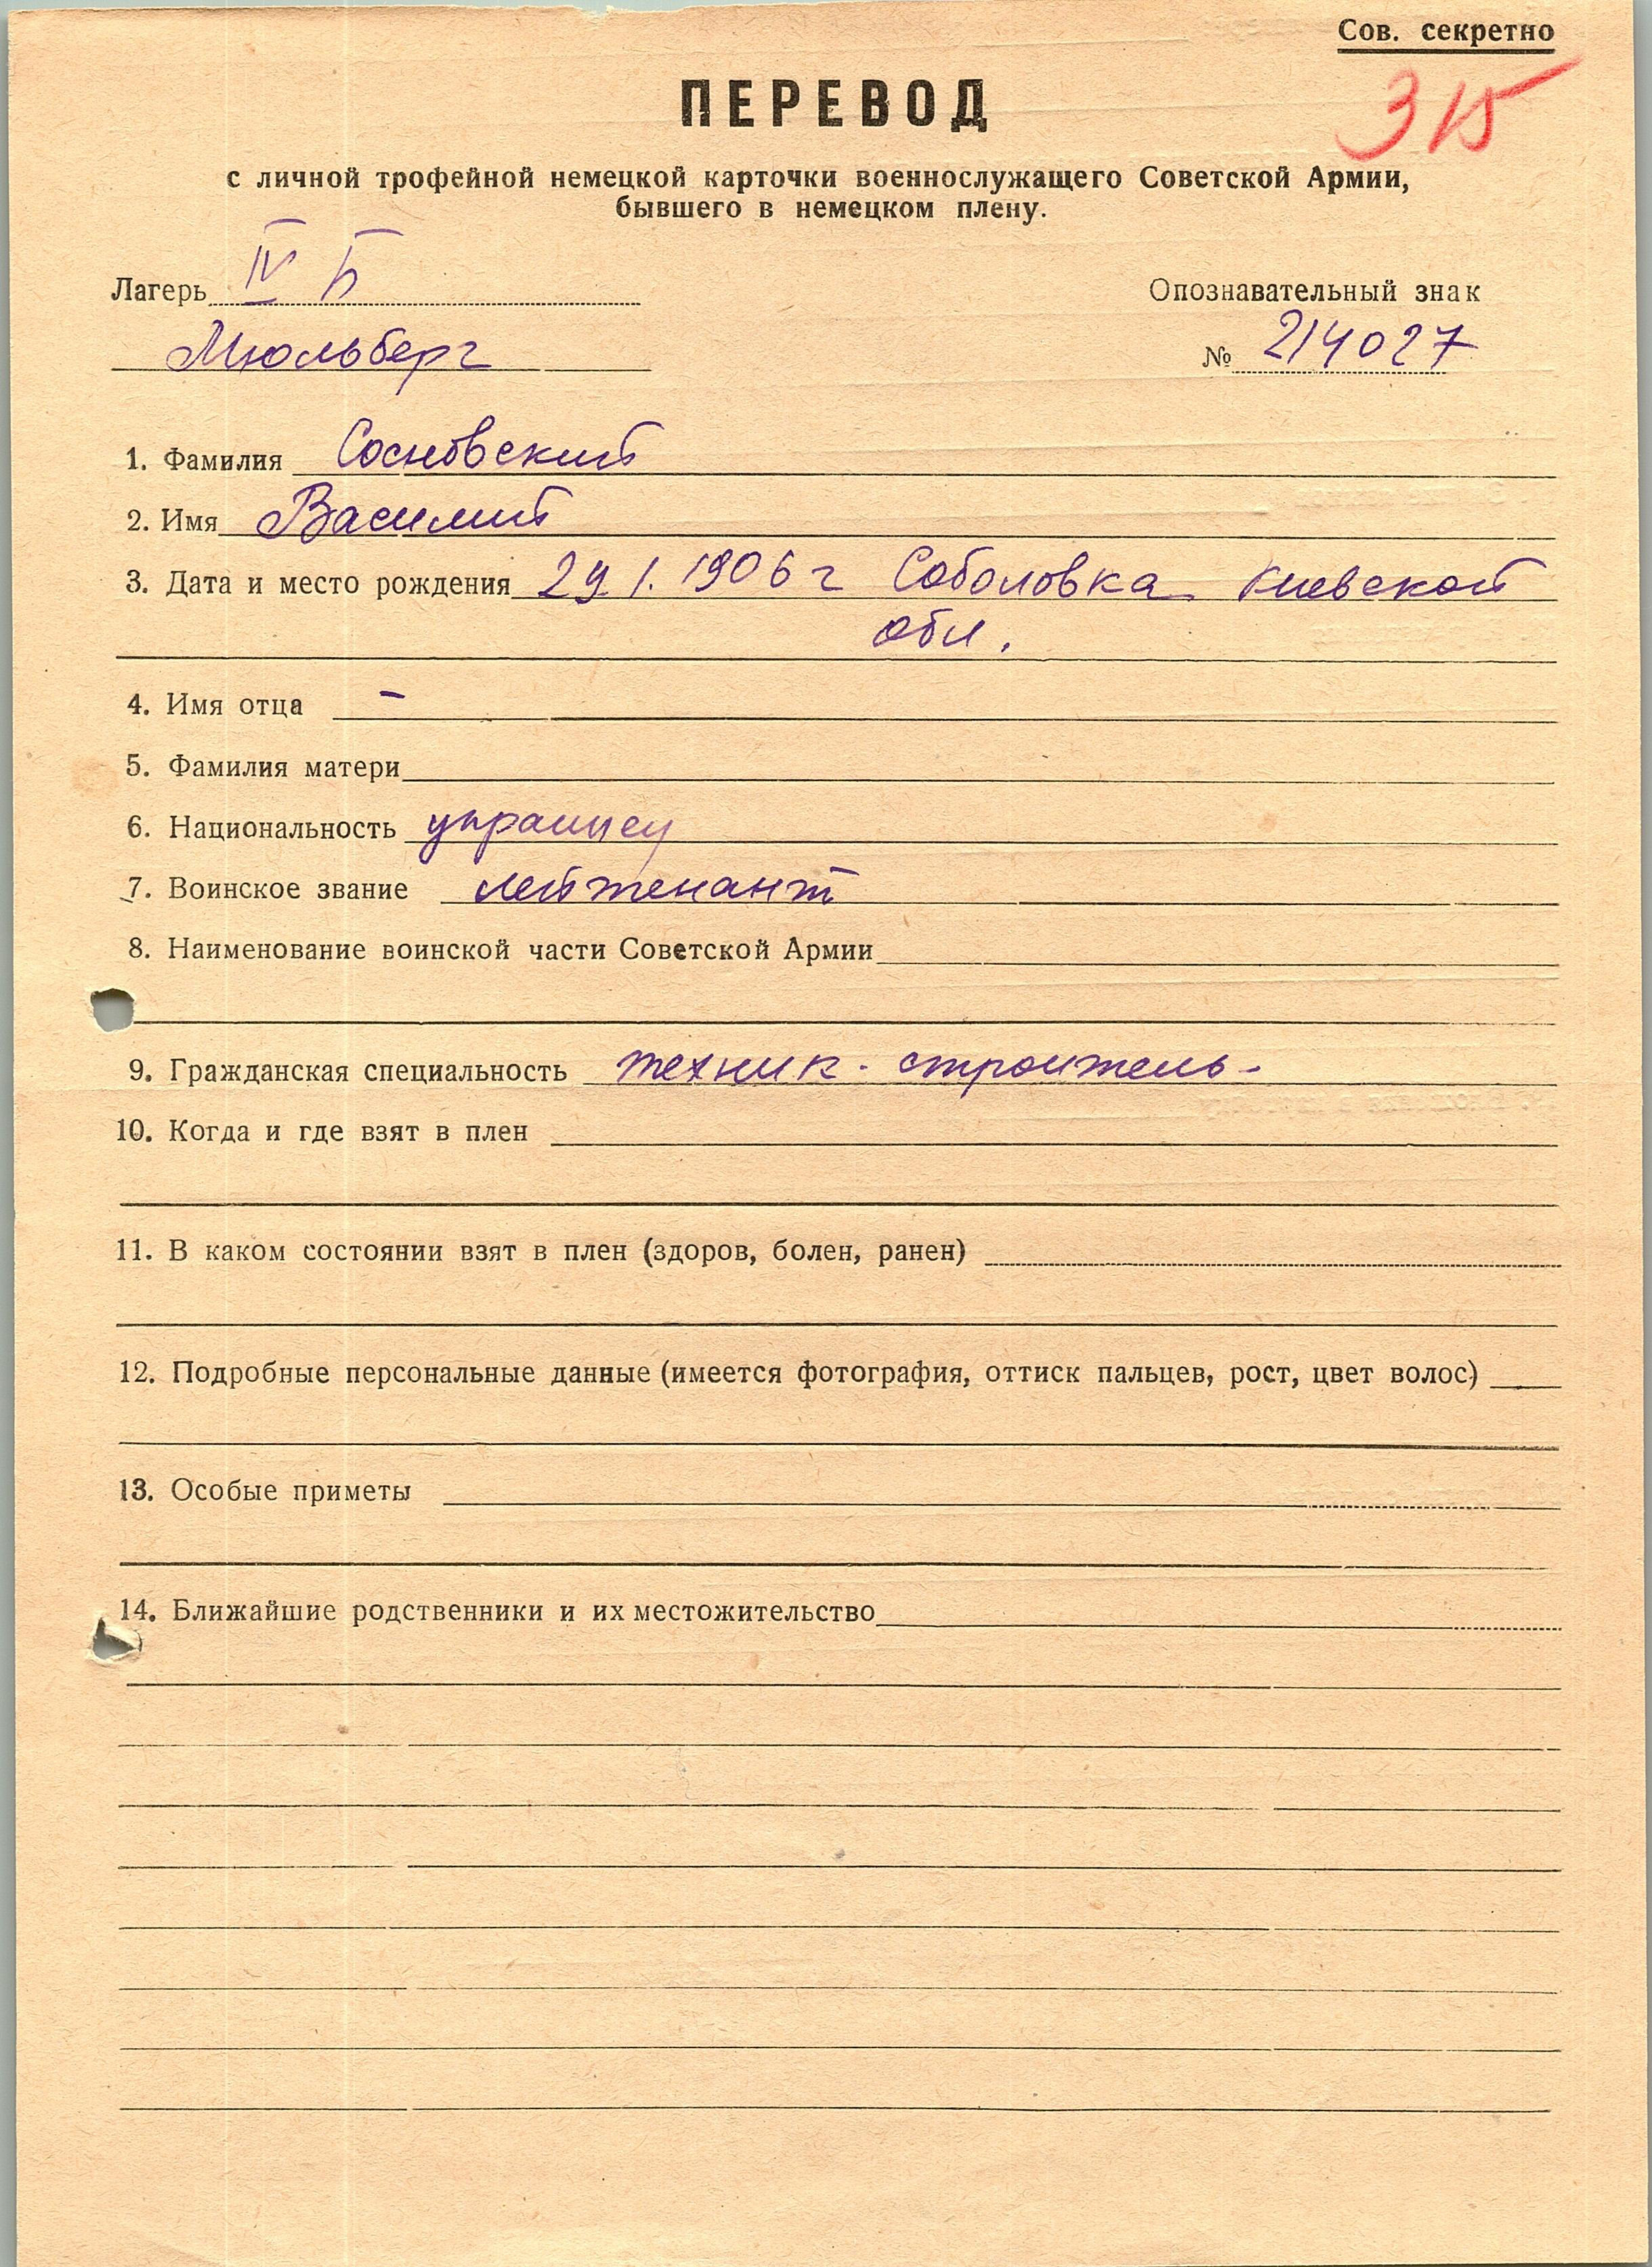 Сов. секретно
315
ПЕРЕВОД
с личной трофейной немецкой карточки военнослужащего Советской Армии,
бывшего в немецком плену.
Лагерь IV Б
Опознавательный знак
Мюльберг
№ 214027
1. Фамилия Сосновский
2. Имя Василий
3. Дата и место рождения 29.1.1906 г Соболовка Киевской
обл.
4. Имя отца –
5. Фамилия матери
6. Национальность украинец
7. Воинское звание лейтенант
8. Наименование воинской части Советской Армии
9. Гражданская специальность техник - строитель -
10. Когда и где взят в плен
11. В каком состоянии взят в плен (здоров, болен, ранен)
12. Подробные персональные данные (имеется фотография, оттиск пальцев, рост, цвет волос)
13. Особые приметы
14. Ближайшие родственники и их местожительство